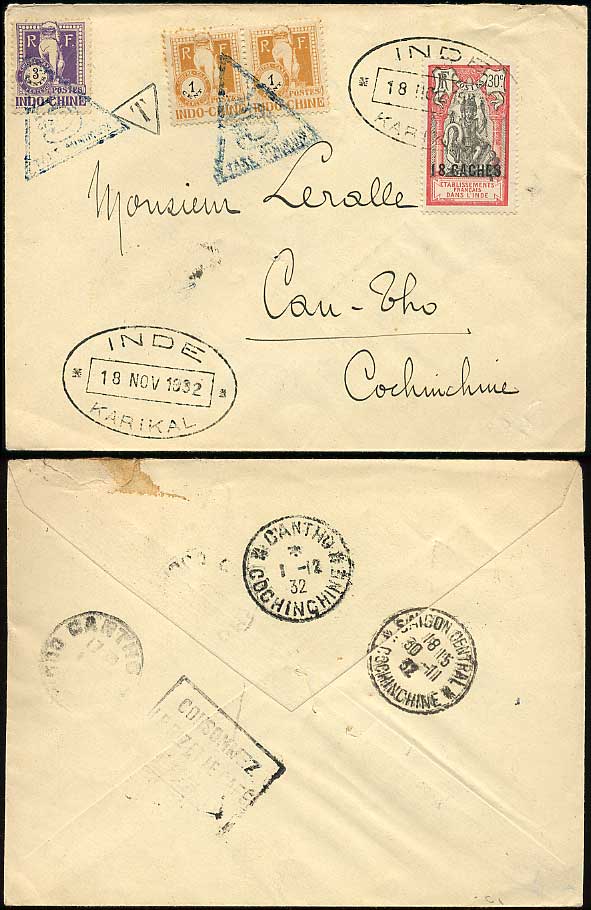 R F
3
POSTES
INDO-CHINE
T
R F
1
POSTES
INDO-CHINE
R F
1
POSTES
INDO-CHINE
INDE
18
KARIKAL
30c
18 CACHES
ÉTABLISSEMENTS
FRANÇAIS
DANS L'INDE
Monsieur Leralle
Can-Tho
Cochinchine
INDE
18 NOV 1932
KARIKAL
CANTHO
1-12
32
COCHINCHINE
SAIGON CENTRAL
18 15
30-11
32
COCHINCHINE
CANTHO